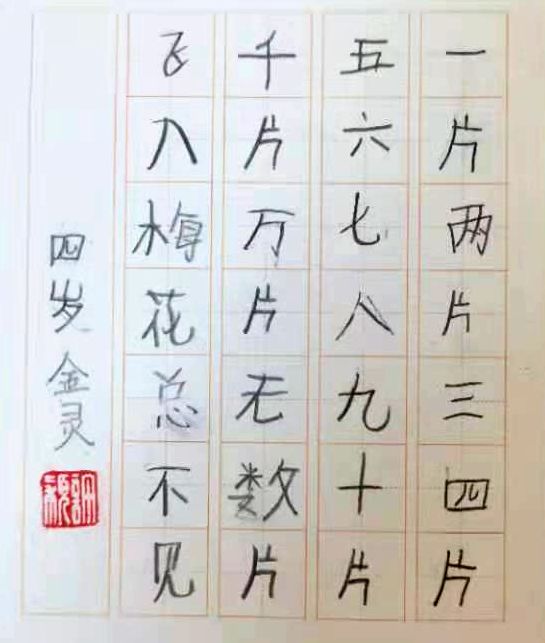 一片两片三四片
五六七八九十片
千片万片无数片
飞入梅花总不见
四岁金灵